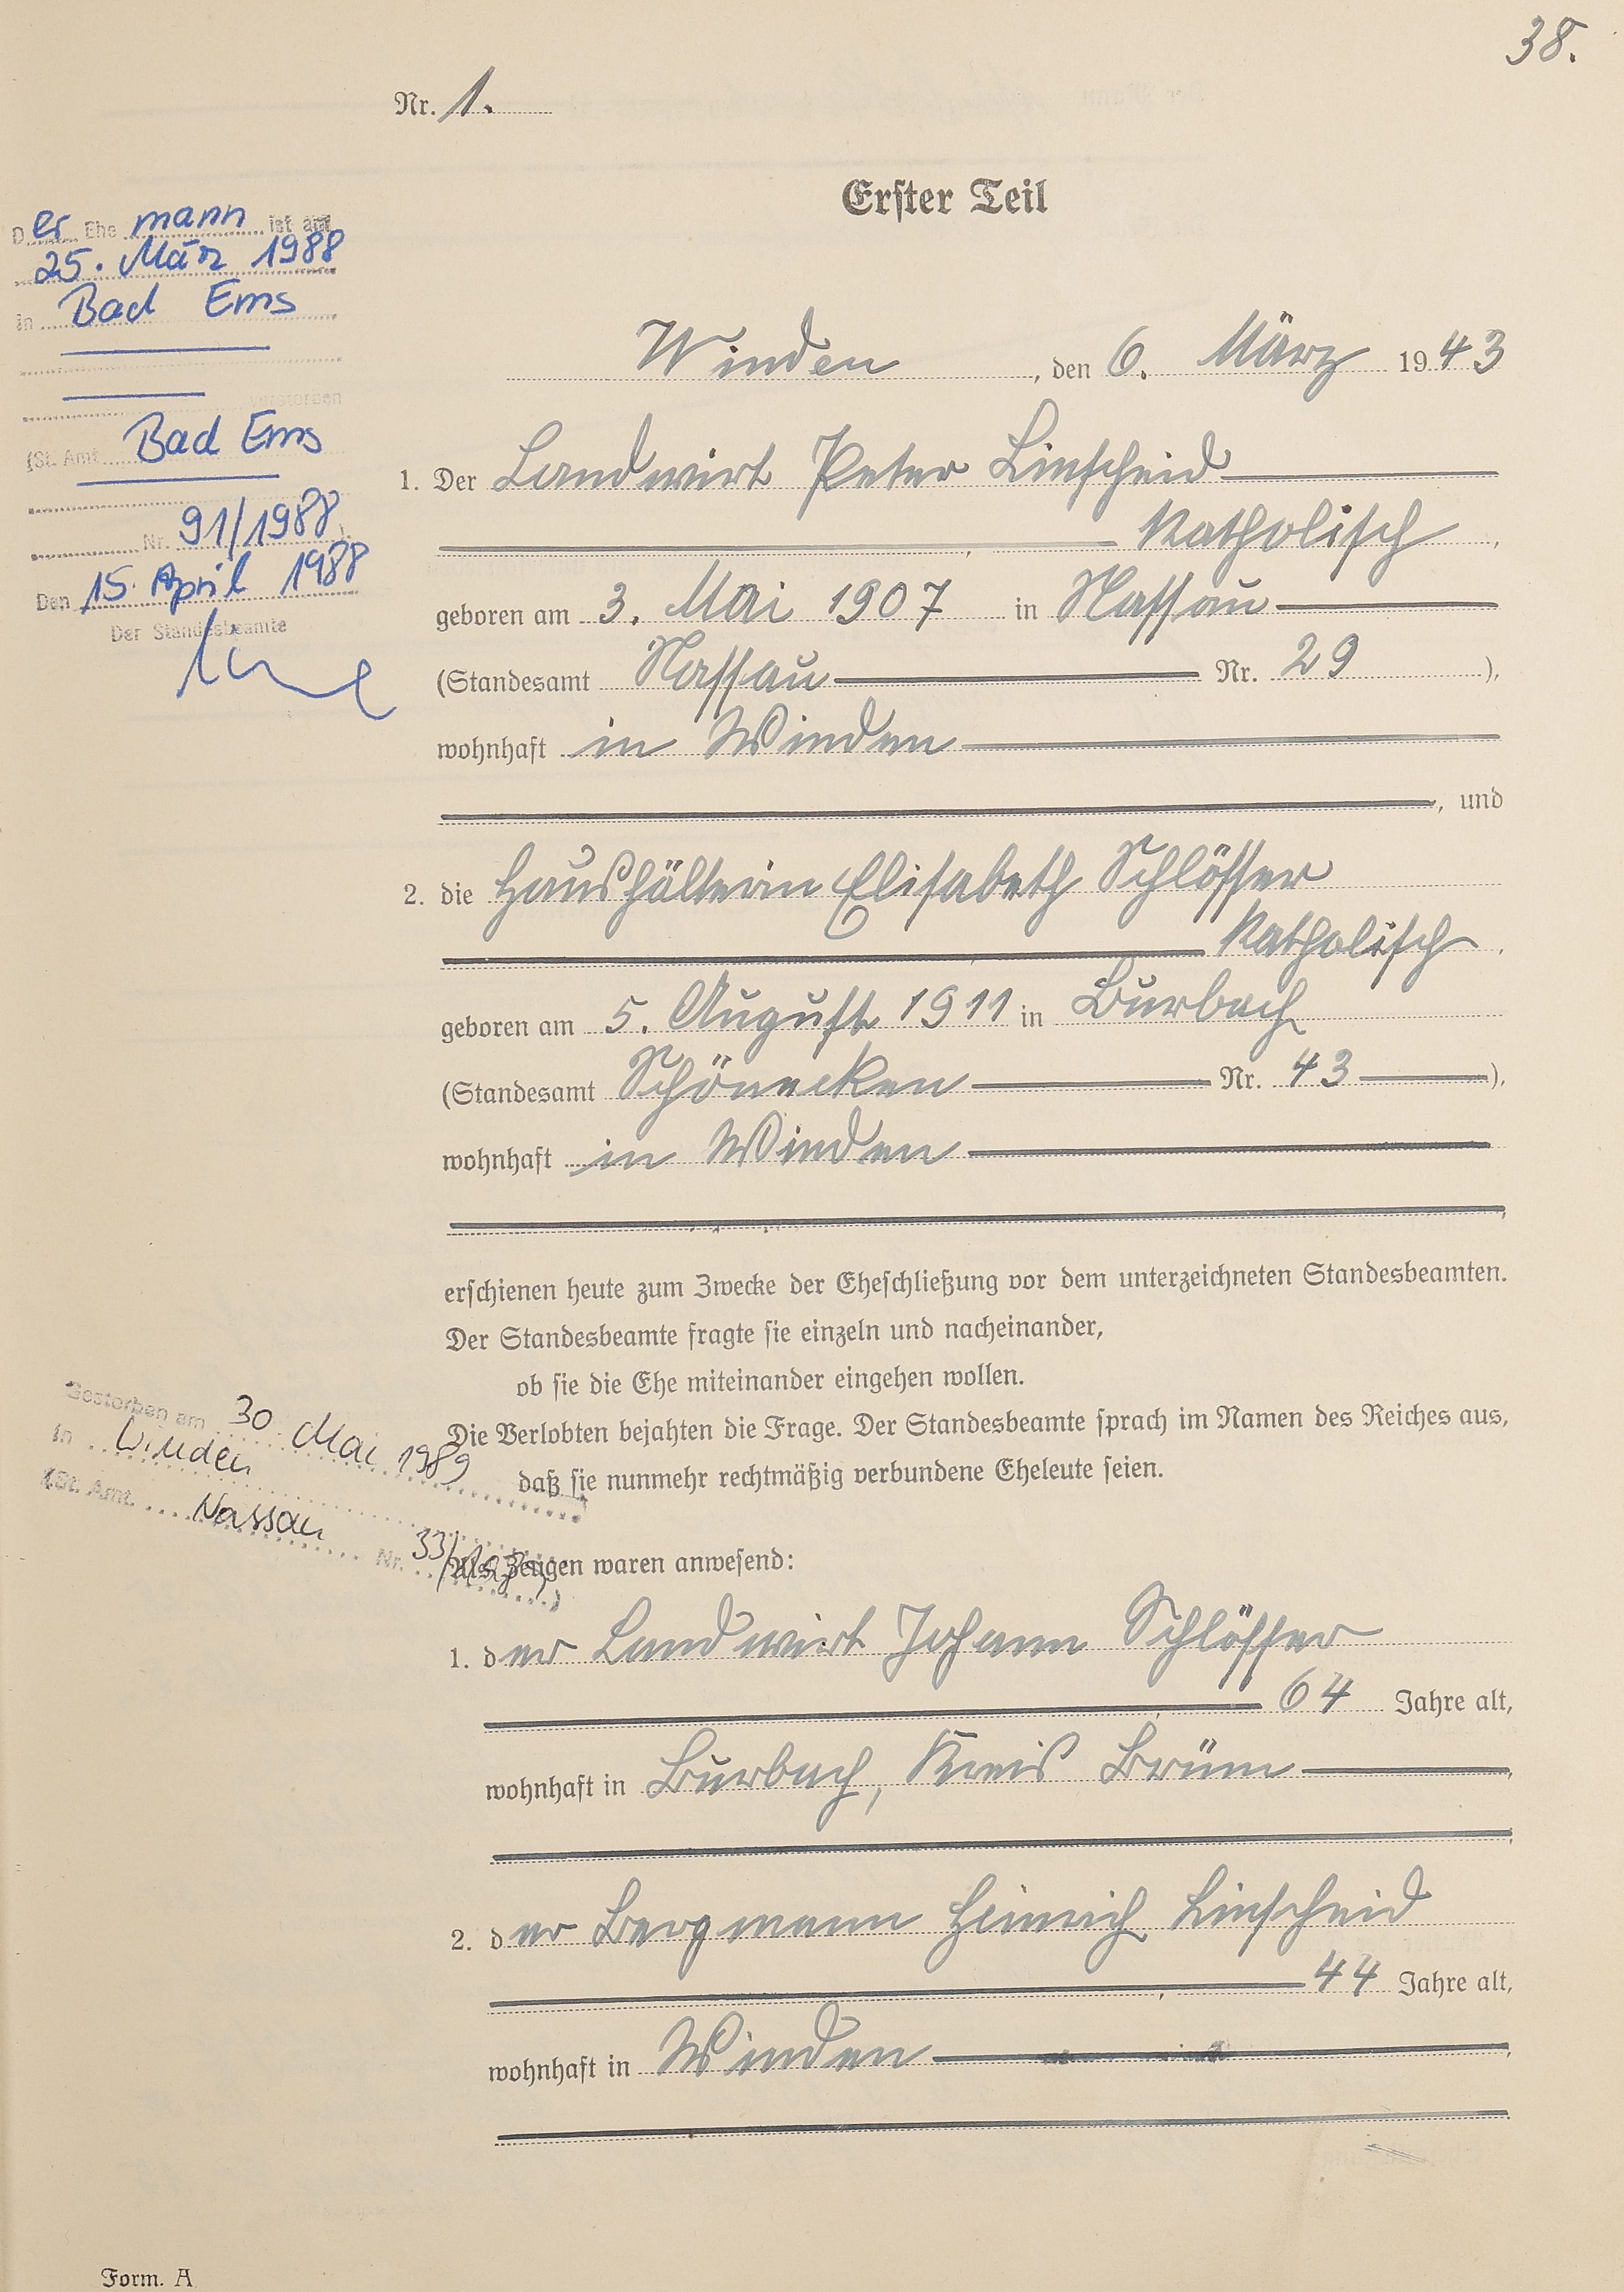 38.
Nr. 1.
Erster Teil
Der Ehemann ist am
25. März 1988
in Bad Ems
verstorben
(St. Amt Bad Ems
Nr. 91/1988)
Den 15. April 1988
Der Standesbeamte
Winden, den 6. März 1943
1. Der Landwirt Peter Linscheid
katholisch,
geboren am 3. Mai 1907 in Nassau
(Standesamt Nassau Nr. 29),
wohnhaft in Winden
, und
2. die Haushälterin Elisabeth Schlösser
katholisch,
geboren am 5. August 1911 in Burbach
(Standesamt Schönecken Nr. 43),
wohnhaft in Winden
erschienen heute zum Zwecke der Eheschließung vor dem unterzeichneten Standesbeamten.
Der Standesbeamte fragte sie einzeln und nacheinander,
ob sie die Ehe miteinander eingehen wollen.
Die Verlobten bejahten die Frage. Der Standesbeamte sprach im Namen des Reiches aus,
daß sie nunmehr rechtmäßig verbundene Eheleute seien.
Gestorben am 30. Mai 1989
in Winden
(St. Amt. Nassau Nr. 33/1989)
Als Zeugen waren anwesend:
1. der Landwirt Johann Schlösser
64 Jahre alt,
wohnhaft in Burbach, Kreis Brüm,
2. der Bergmann Heinrich Linscheid
44 Jahre alt,
wohnhaft in Winden,
Form. A